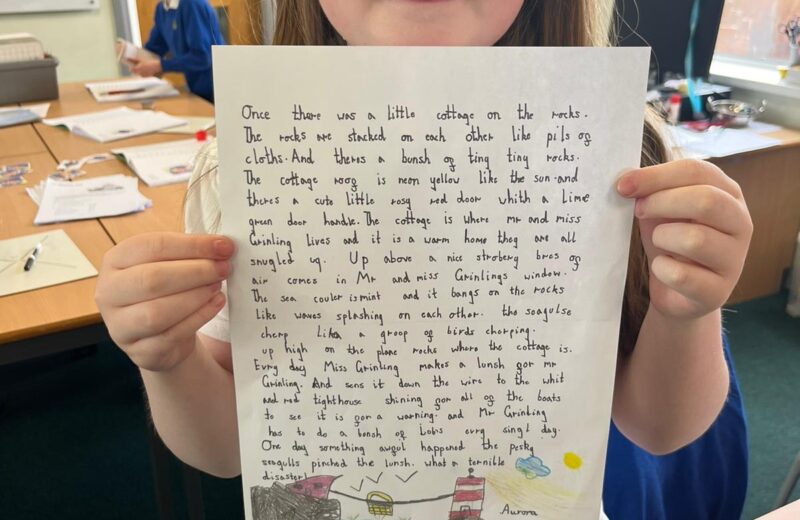 Once there was a little cottage on the rocks.
The rocks are stacked on each other like pils of
cloths. And theres a bunsh of ting tiny rocks.
The cottage roof is neon yellow like the sun. and
theres a cute little rosy red door whith a lime
green door handle. The cottage is where mr and miss
Grinling lives and it is a warm home they are all
snugled up. Up above a nice strobery bres of
air comes in Mr and miss Grinlings window.
The sea couler is mint and it bangs on the rocks
Like waves splashing on each other. the seagulse
cherp Like a groop of birds cherping.
up high on the plane rocks where the cottage is.
Evry day Miss Grinling makes a lunsh for mr
Grinling. And sens it down the wire to the whit
and red lighthouse shining for all of the boats
to see it is for a warning. and Mr Grinling
has to do a bonsh of Lobs evry singl day.
One day something awful happened the pesky
seagulls pinched the lunsh. what a terrible
disaster!
Aurora